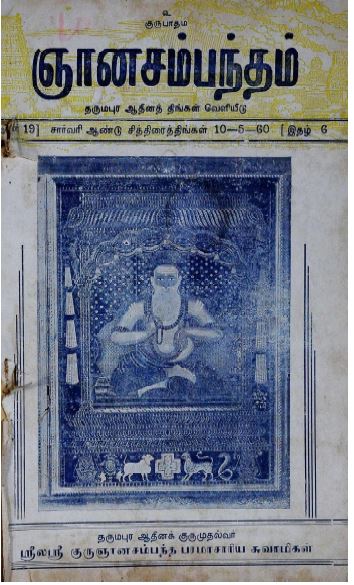 உ
குருபாதம்
ஞானசம்பந்தம்
தருமபுர ஆதீனத் திங்கள் வெளியீடு
19] சார்வரி ஆண்டு சித்திரைத்திங்கள் 10—5—60 [இதழ் 6
தருமபுர ஆதீனக் குருமுதல்வர்
ஸ்ரீலஸ்ரீ குருஞானசம்பந்த பரமாசாரிய சுவாமிகள்